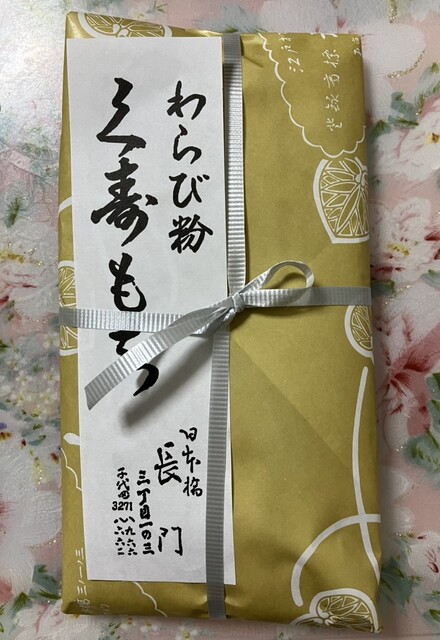 わらび粉
久寿もち
日本橋
長門
三丁目一の三
千代田
3271
八九六六
八六六二